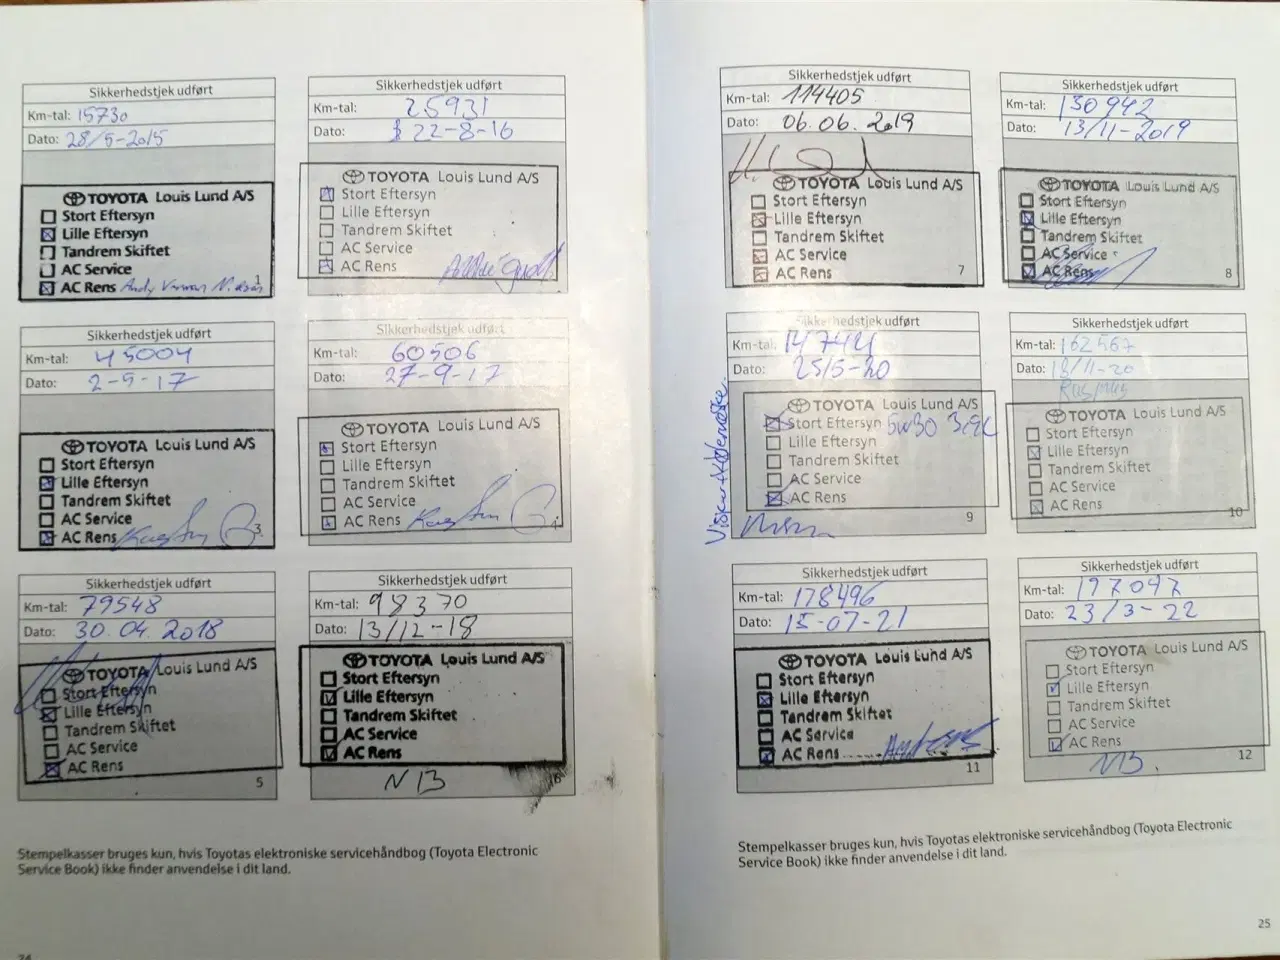 Sikkerhedstjek udført
Km-tal: 15730
Dato: 28/5-2015
TOYOTA Louis Lund A/S
Stort Eftersyn
Lille Eftersyn
Tandrem Skiftet
AC Service
AC Rens Andy
1
Sikkerhedstjek udført
Km-tal: 25931
Dato: 22-8-16
TOYOTA Louis Lund A/S
Stort Eftersyn
Lille Eftersyn
Tandrem Skiftet
AC Service
AC Rens
Sikkerhedstjek udført
Km-tal: 45004
Dato: 2-9-17
TOYOTA Louis Lund A/S
Stort Eftersyn
Lille Eftersyn
Tandrem Skiftet
AC Service
AC Rens
3
Sikkerhedstjek udført
Km-tal: 60506
Dato: 27-9-17
TOYOTA Louis Lund A/S
Stort Eftersyn
Lille Eftersyn
Tandrem Skiftet
AC Service
AC Rens
4
Sikkerhedstjek udført
Km-tal: 79548
Dato: 30.04.2018
TOYOTA Louis Lund A/S
Stort Eftersyn
Lille Eftersyn
Tandrem Skiftet
AC Service
AC Rens
5
Sikkerhedstjek udført
Km-tal: 98370
Dato: 13/12-18
TOYOTA Louis Lund A/S
Stort Eftersyn
Lille Eftersyn
Tandrem Skiftet
AC Service
AC Rens
NB
Stempelkasser bruges kun, hvis Toyotas elektroniske servicehåndbog (Toyota Electronic
Service Book) ikke finder anvendelse i dit land.
24
Sikkerhedstjek udført
Km-tal: 114405
Dato: 06.06.2019
TOYOTA Louis Lund A/S
Stort Eftersyn
Lille Eftersyn
Tandrem Skiftet
AC Service
AC Rens
7
Sikkerhedstjek udført
Km-tal: 130942
Dato: 13/11-2019
TOYOTA Louis Lund A/S
Stort Eftersyn
Lille Eftersyn
Tandrem Skiftet
AC Service
AC Rens
8
Sikkerhedstjek udført
Km-tal: 14744
Dato: 25/5-20
TOYOTA Louis Lund A/S
Stort Eftersyn 5W30
Lille Eftersyn
Tandrem Skiftet
AC Service
AC Rens
9
Sikkerhedstjek udført
Km-tal: 162567
Dato: 18/11-20
Rasmus
TOYOTA Louis Lund A/S
Stort Eftersyn
Lille Eftersyn
Tandrem Skiftet
AC Service
AC Rens
10
Sikkerhedstjek udført
Km-tal: 178496
Dato: 15-07-21
TOYOTA Louis Lund A/S
Stort Eftersyn
Lille Eftersyn
Tandrem Skiftet
AC Service
AC Rens
11
Sikkerhedstjek udført
Km-tal: 197047
Dato: 23/3-22
TOYOTA Louis Lund A/S
Stort Eftersyn
Lille Eftersyn
Tandrem Skiftet
AC Service
AC Rens
NB.
12
Stempelkasser bruges kun, hvis Toyotas elektroniske servicehåndbog (Toyota Electronic
Service Book) ikke finder anvendelse i dit land.
25